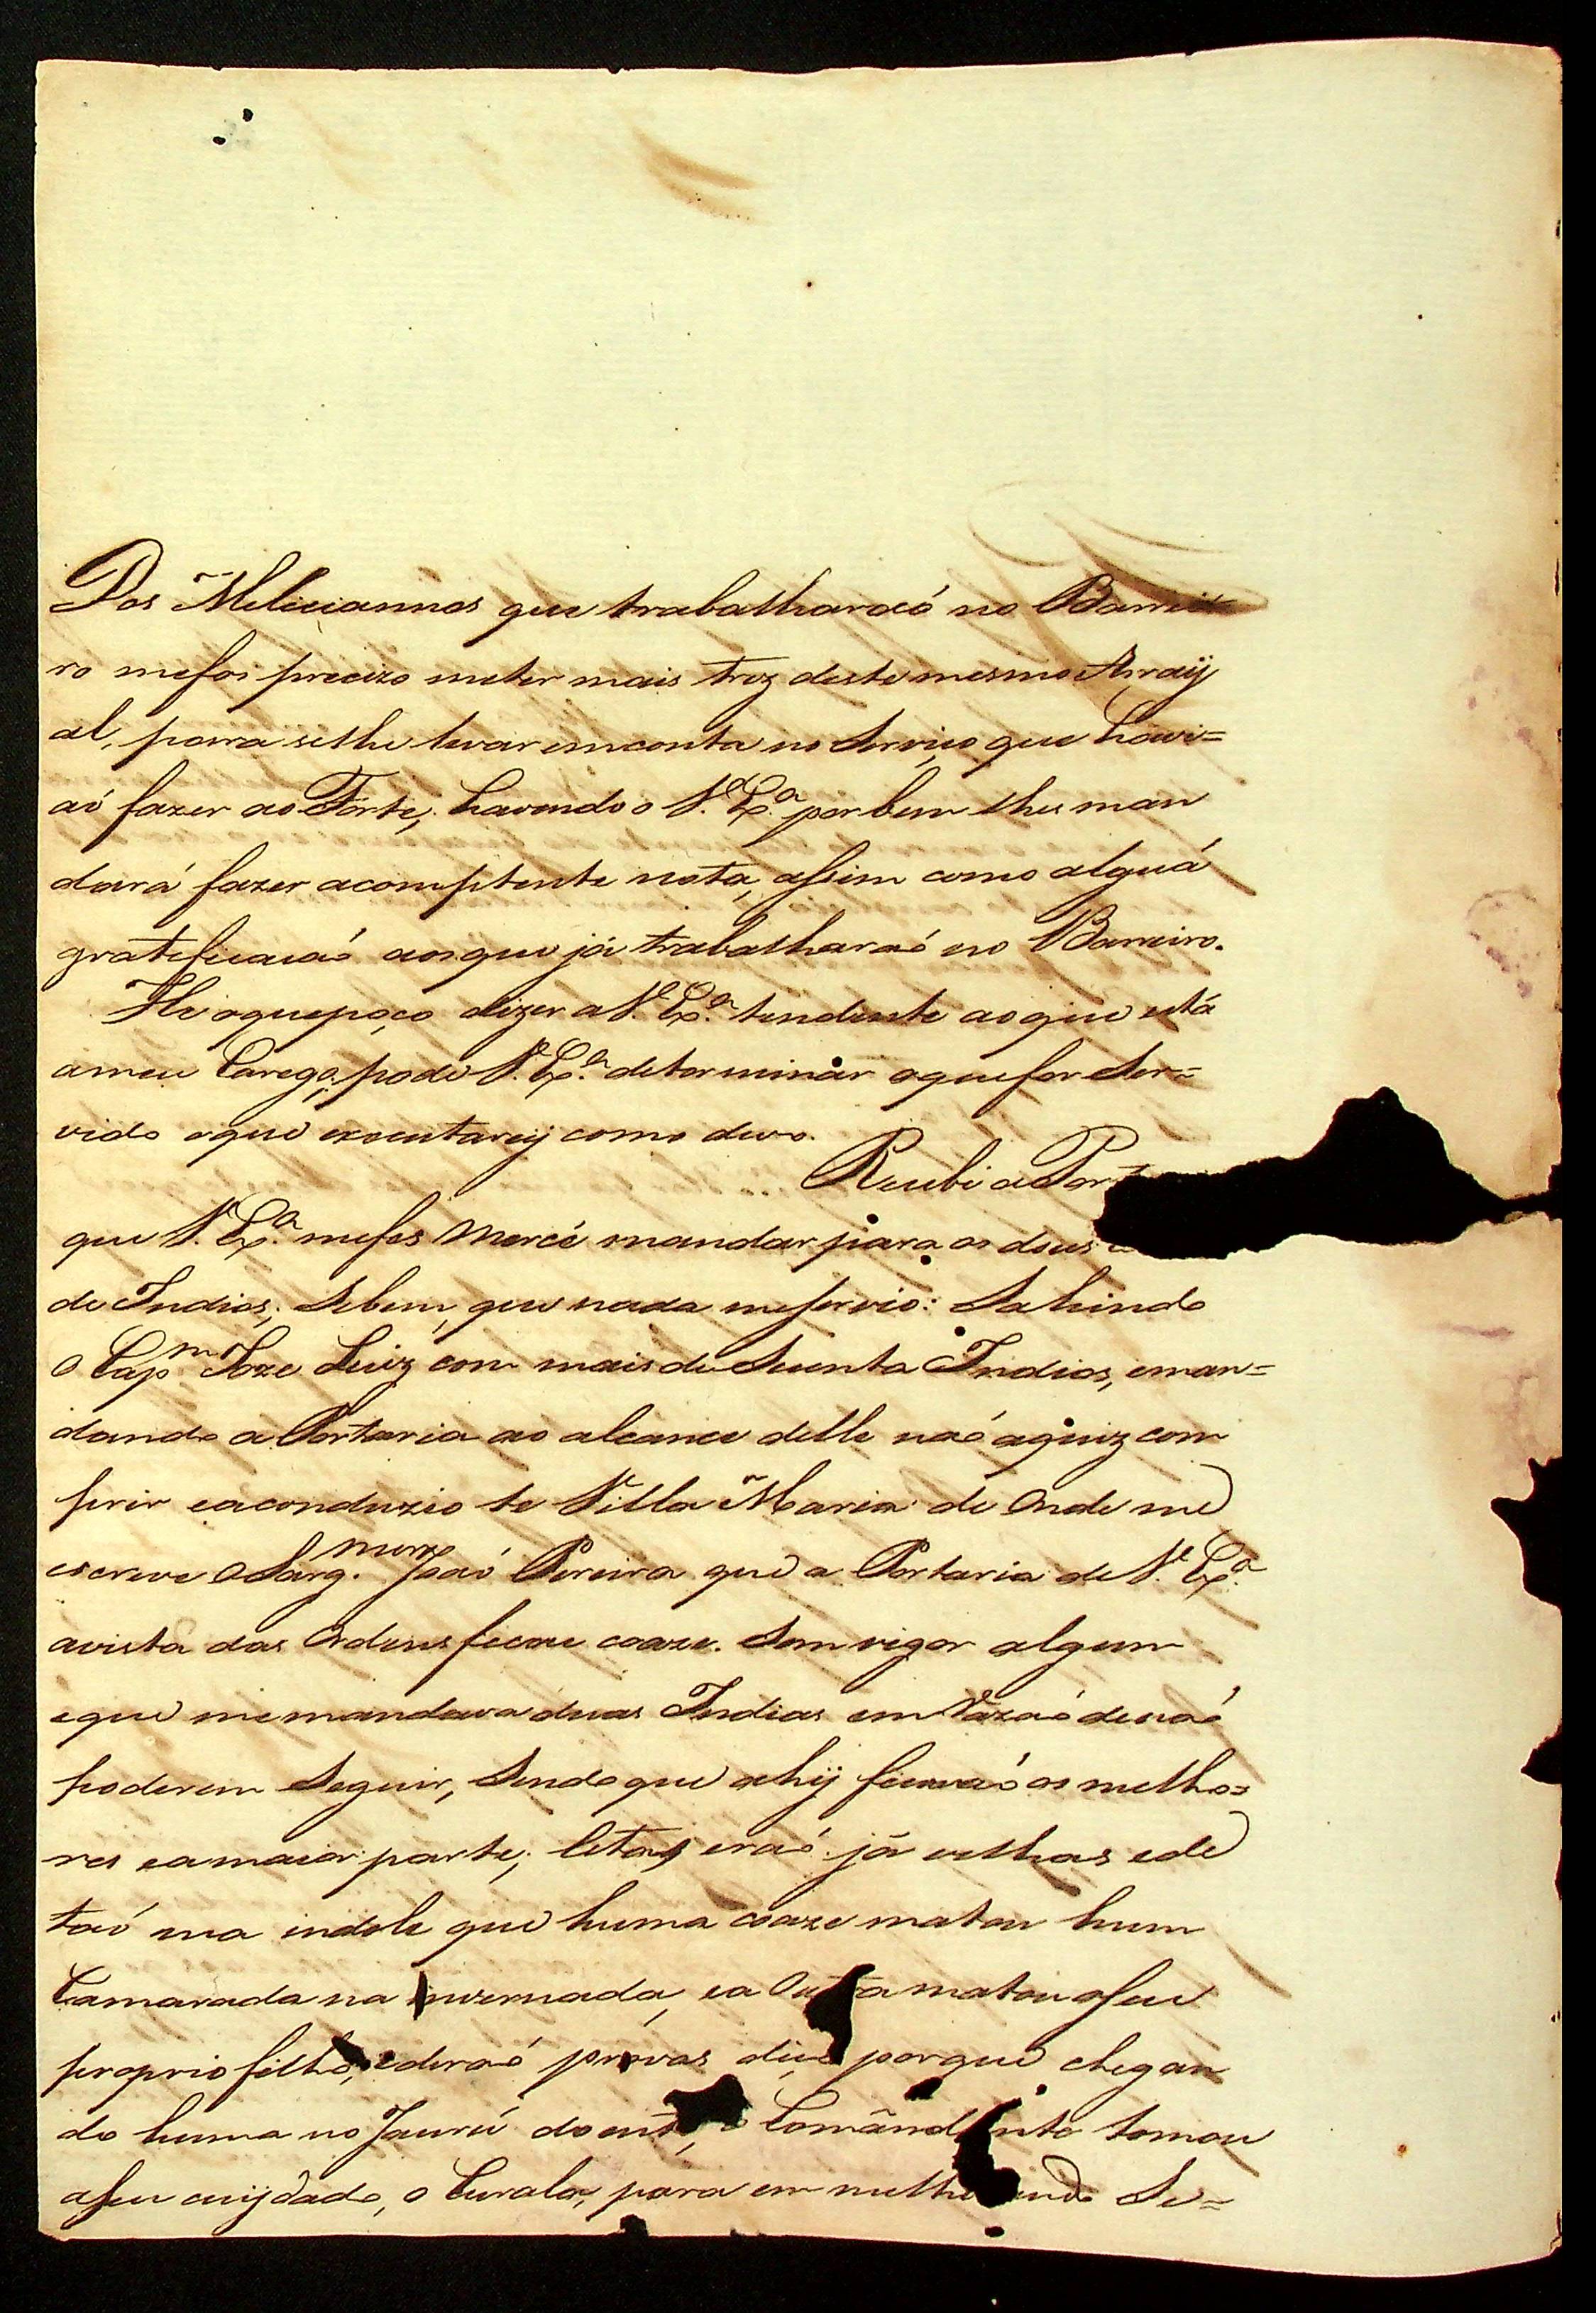 Dos Meliciannos que trabalharaõ no Barrei
ro mefoi precizo meter mais trez deste mesmo Arraÿ
al, para selhe levar emconta no Serviço que havi=
aõ fazer ao Forte, havendo o V. Ex.ª por bem lhes man
dará fazer acomptente nota, assim como alguã
grateficacaõ aosque já trabalharaõ no Barreiro.
He oqueposso dizer a V. Ex.ª tendente aoque está
ameu Carego; pode V. Ex.ª determinar oquefor Ser=
vido oque executareÿ como devo.
Recebi a Por
que V. Ex.ª mefes Mercê mandar para os dous
de Indios; Sebem, que nada meservio: Sahindo
o Cap.m Joze Luiz com mais de Secenta Indios, eman=
dando a Portaria ao alcance delle naõ aquiz com
prir eaconduzio te Villa Maria de Onde me
escreve o Sarg. mor Joaõ Pereira que a Portaria de V. Ex.ª
avista das Ordens ficou coaze Sem vigor algum
eque memandava duas Indias em Razaõ denaõ
poderem Seguir, Sendo que ahÿ ficavaõ os melho=
res eamaior parte; Estas eraõ já velhas ede
taõ ma indole que huma coaze matou hum
Camarada na invernada, ea Outra matou oseu
proprio filho, ederaõ provas dice porque chegan
do huma no Jaurú doente, o Comândante tomou
aseu cuÿdado, o Curala, para em melhorando Se=